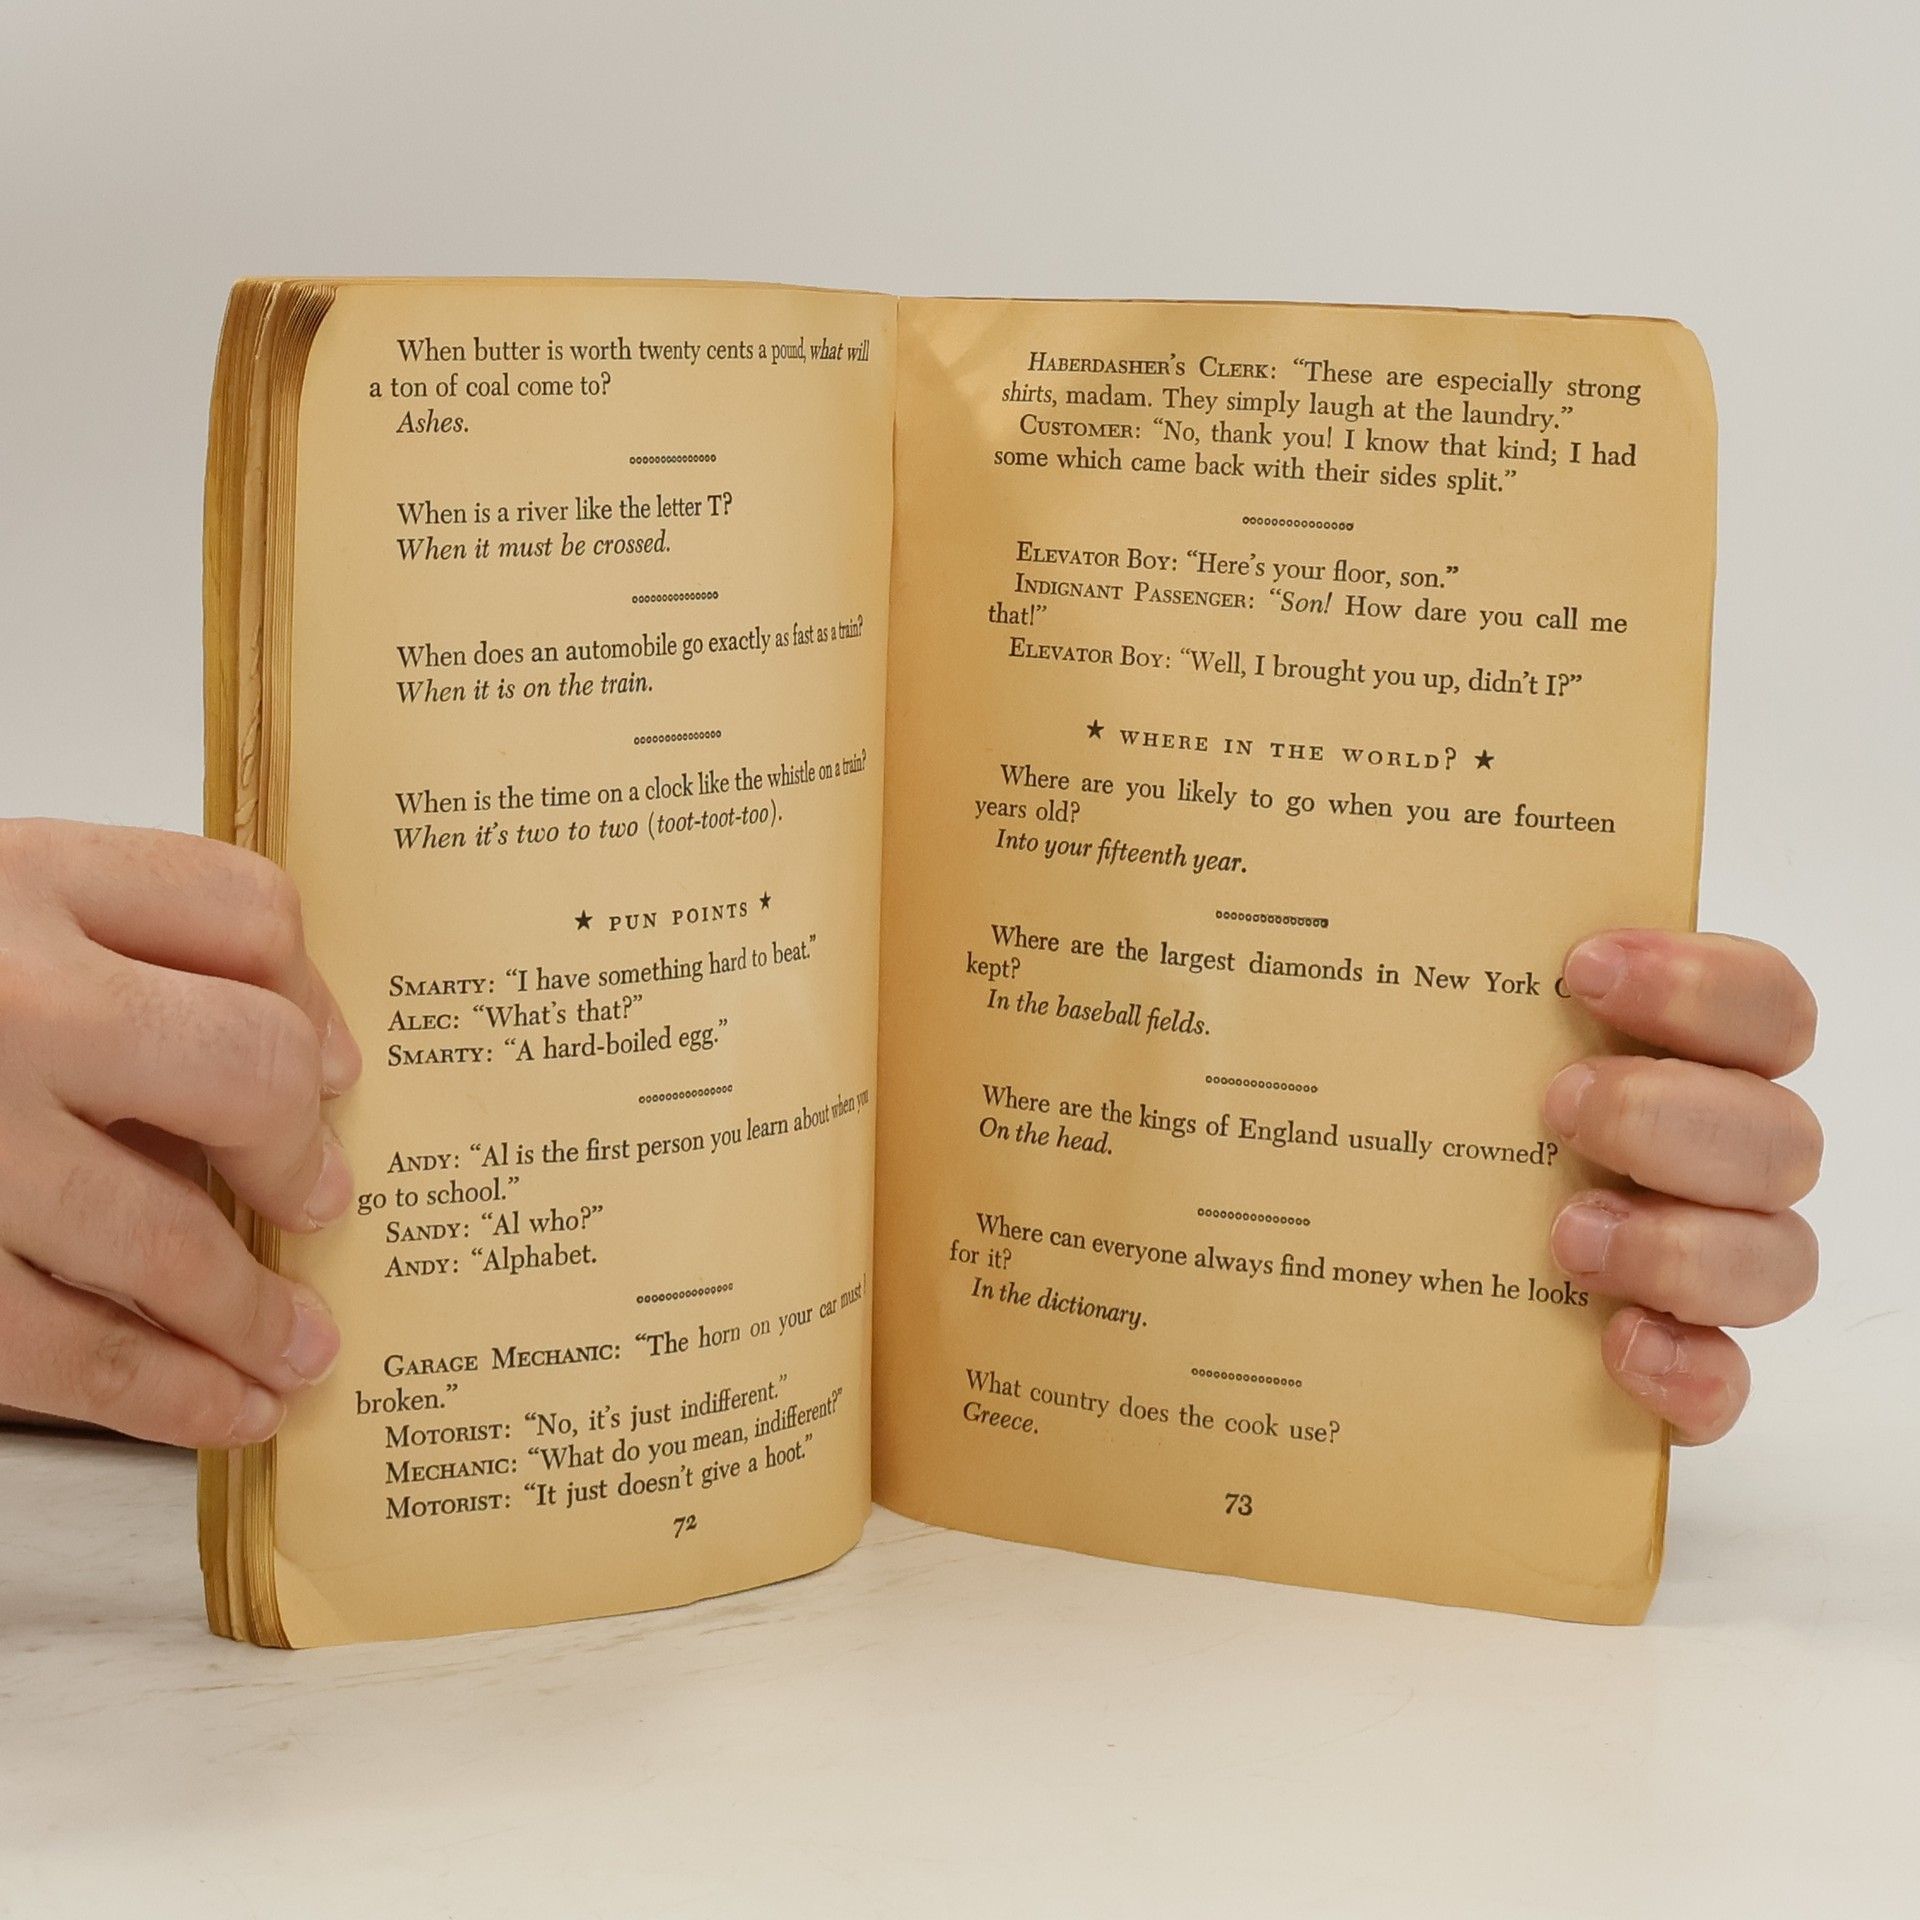 When butter is worth twenty cents a pound, what will
a ton of coal come to?
Ashes.
When is a river like the letter T?
When it must be crossed.
When does an automobile go exactly as fast as a train?
When it is on the train.
When is the time on a clock like the whistle on a train?
When it's two to two (toot-toot-too).
★ PUN POINTS ★
SMARTY: “I have something hard to beat.”
ALEC: “What's that?”
SMARTY: “A hard-boiled egg.”
ANDY: “Al is the first person you learn about when you
go to school.”
SANDY: “Al who?”
ANDY: “Alphabet.
GARAGE MECHANIC: “The horn on your car must
broken.”
MOTORIST: “No, it's just indifferent.”
MECHANIC: “What do you mean, indifferent?”
MOTORIST: “It just doesn't give a hoot.”
72
HABERDASHER'S CLERK: “These are especially strong
shirts, madam. They simply laugh at the laundry.”
CUSTOMER: “No, thank you! I know that kind; I had
some which came back with their sides split.”
ELEVATOR BOY: “Here's your floor, son.”
INDIGNANT PASSENGER: “Son! How dare you call me
that!”
ELEVATOR BOY: “Well, I brought you up, didn't I?”
★ WHERE IN THE WORLD? ★
Where are you likely to go when you are fourteen
years old?
Into your fifteenth year.
Where are the largest diamonds in New York
kept?
In the baseball fields.
Where are the kings of England usually crowned?
On the head.
Where can everyone always find money when he looks
for it?
In the dictionary.
What country does the cook use?
Greece.
73